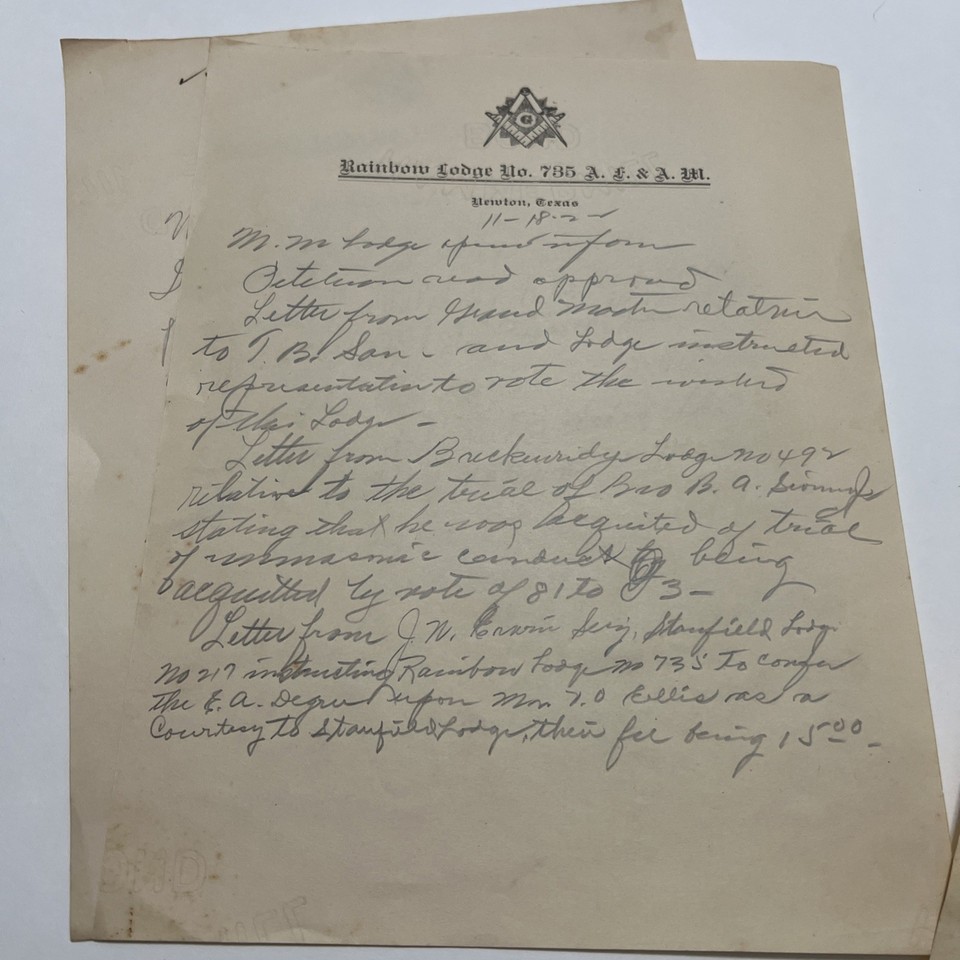 G
Rainbow Lodge No. 735 A. F. & A. M.
Newton, Texas
11-18-2
M. M Lodge opened in form
Petetion read approved
Letter from Grand Master relative
to T. B. San. and Lodge instructed
representative to vote the wished
of this Lodge -
Letter from Breckenridge Lodge no 492
relative to the trial of Bro B. A.
stating that he was acquited of trial
of unmasonic conduct being
acquitted by vote of 81 to 3 -
Letter from J. N. Erwin Secy, Stanfield Lodge
No 217 instructing Rainbow Lodge no 735 To confer
the E. A. Degree upon Mr. T. O Ellis as a
Courtesy to Stanfield Lodge, their fee being 15 00 -